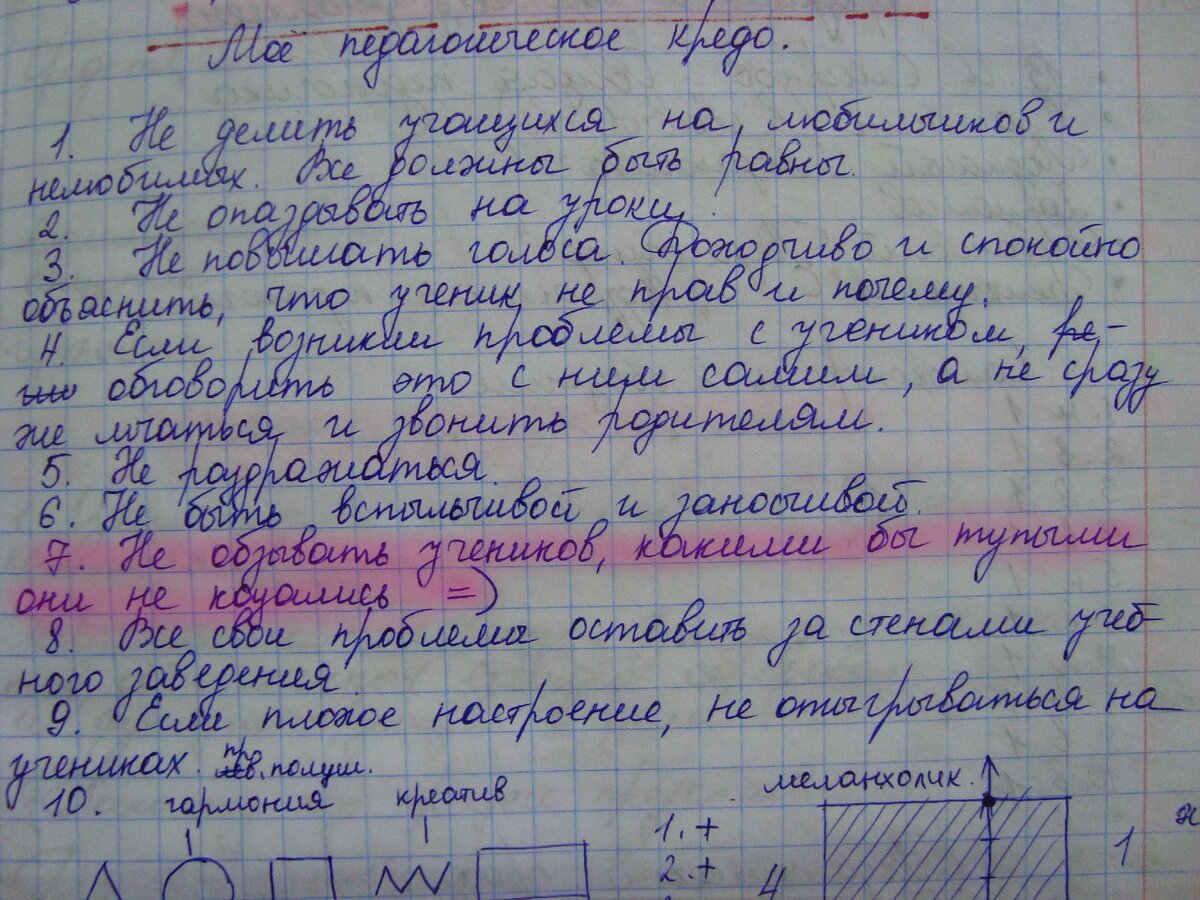 Моё педагогическое кредо.
1. Не делить учащихся на любимчиков и
нелюбимых. Все должны быть равны.
2. Не опаздывать на уроки.
3. Не повышать голоса. Доходчиво и спокойно
объяснить, что ученик не прав и почему.
4. Если возникли проблемы с учеником,
обговорить это с ним самим, а не сразу
же мчаться и звонить родителям.
5. Не раздражаться.
6. Не быть вспыльчивой и заносчивой.
7. Не обзывать учеников, какими бы тупыми
они не казались =)
8. Все свои проблемы оставить за стенами учеб-
ного заведения.
9. Если плохое настроение, не отыгрываться на
учениках. пр. полуш.
10. гармония креатив
меланхолик.
1. +
2. +
4
1